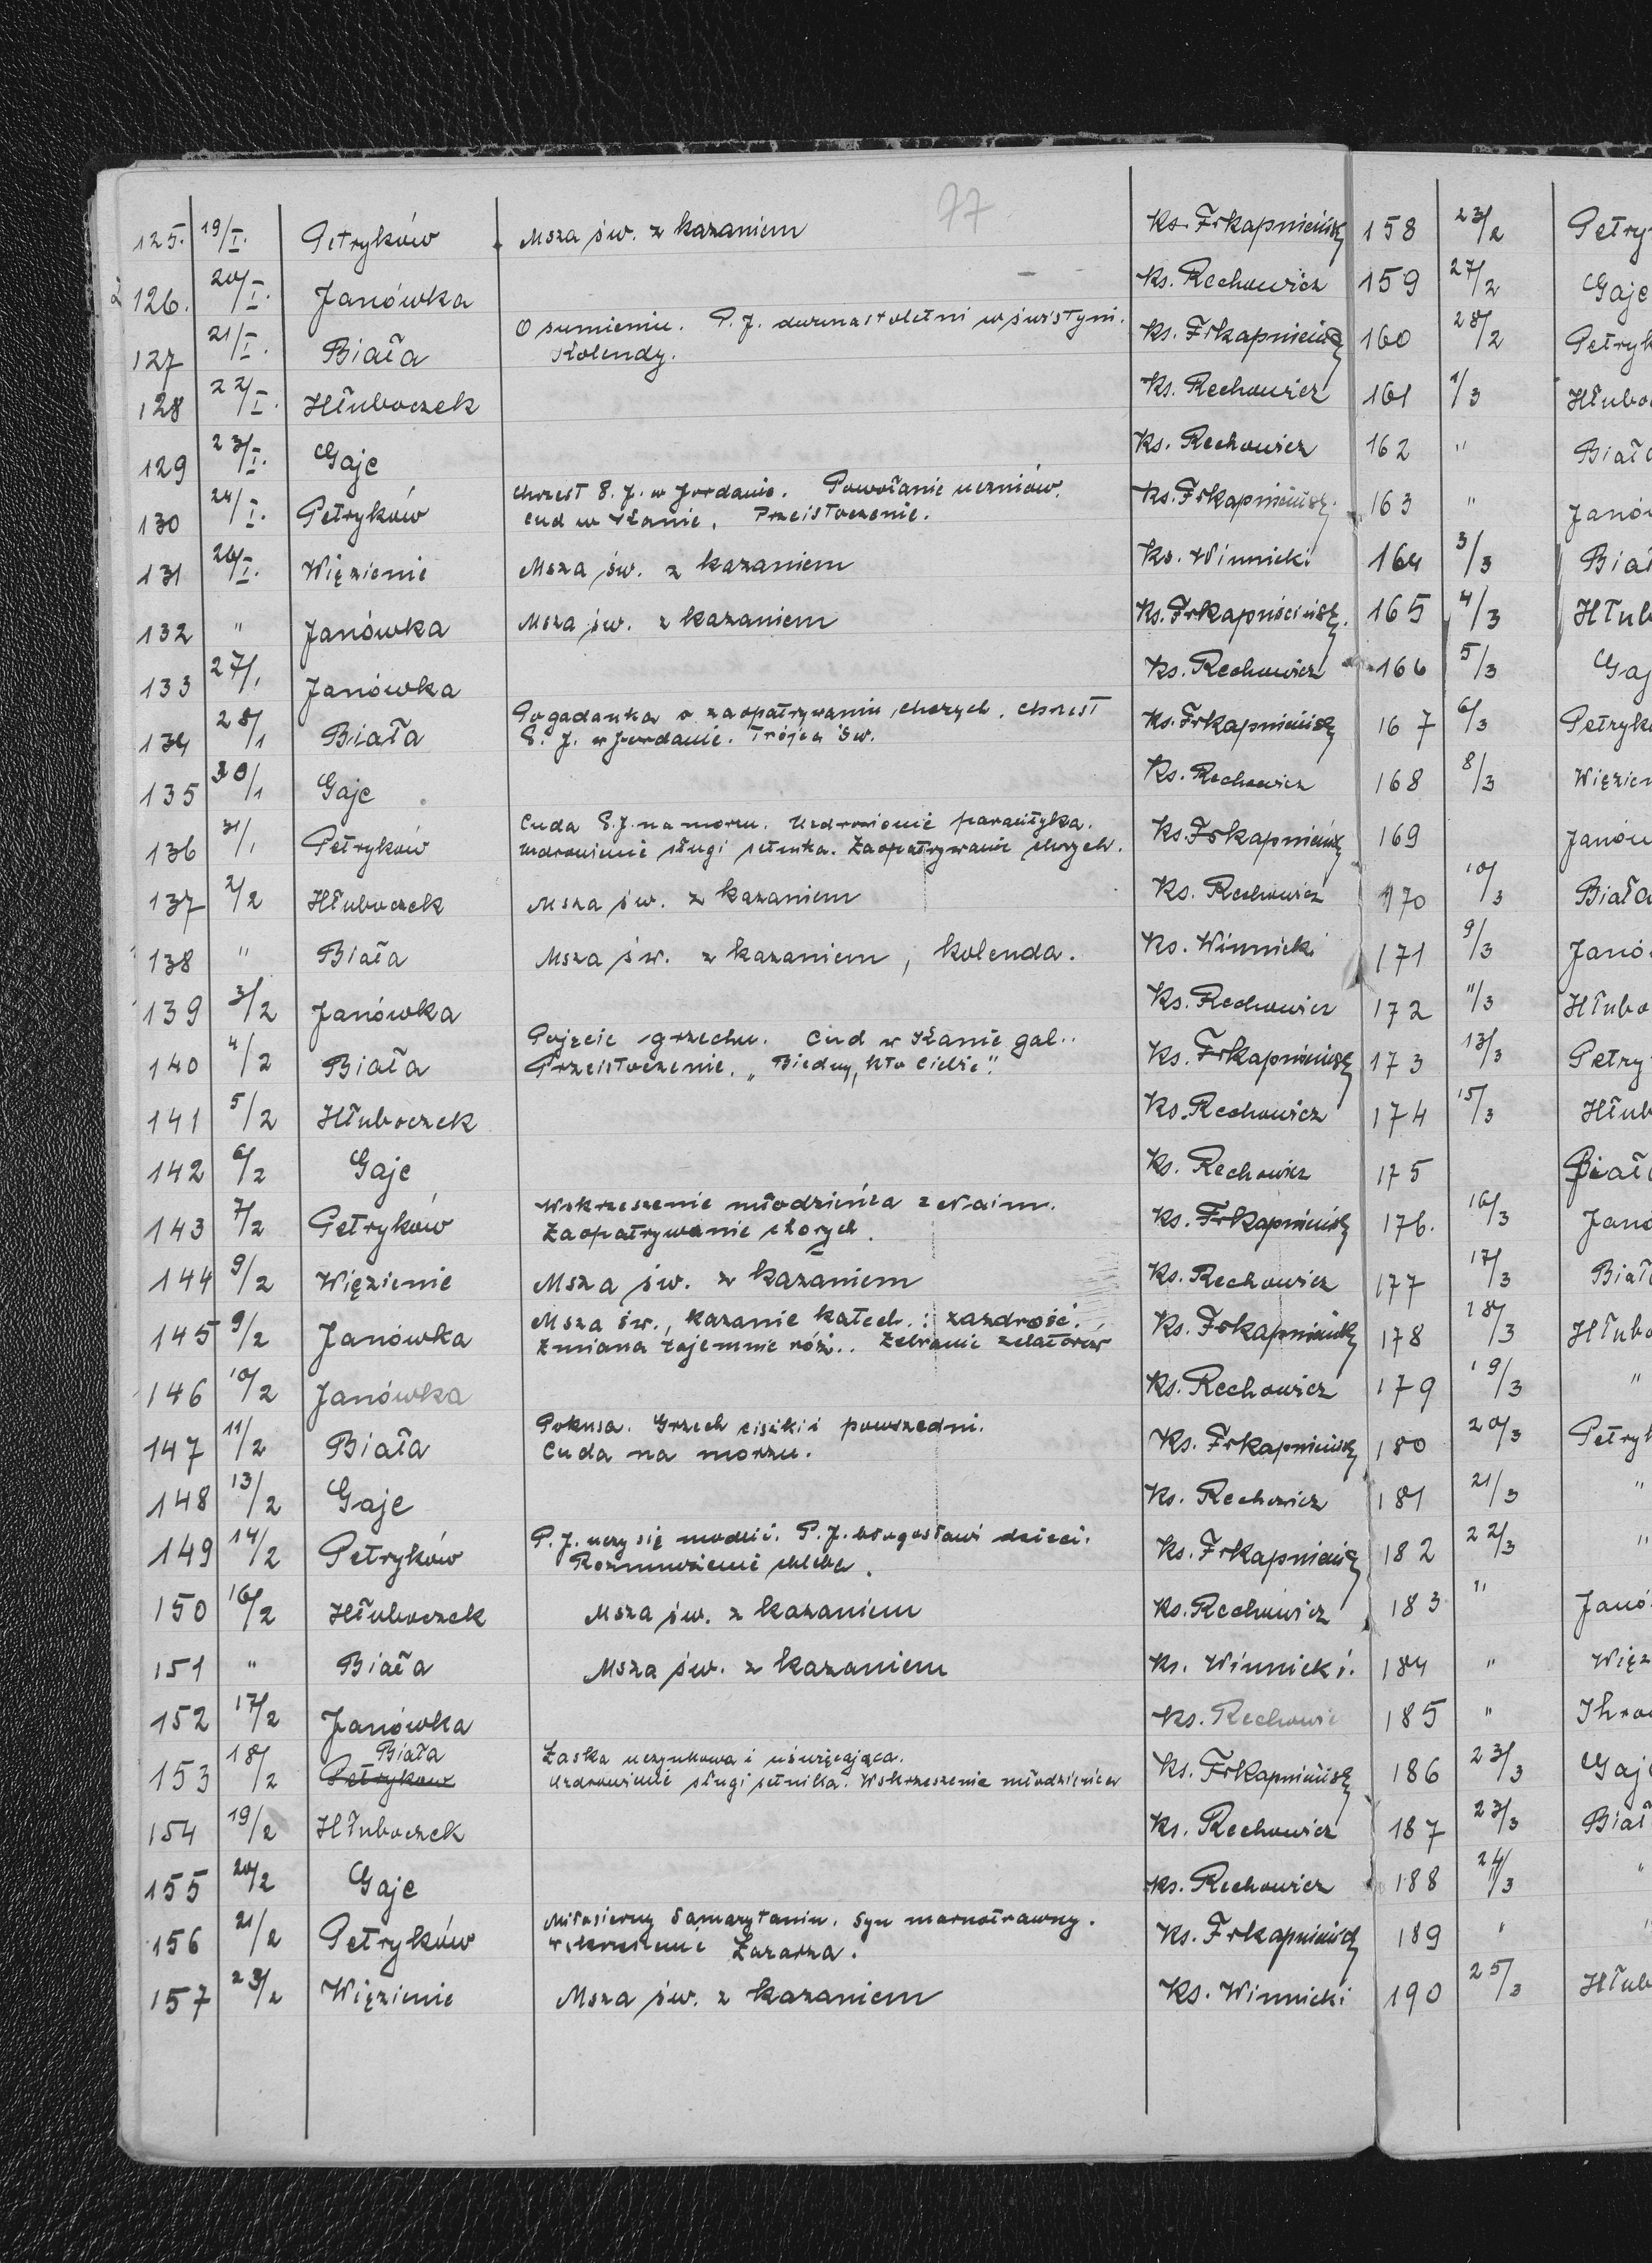 77
125. 19/I. Petryków Msza św. z kazaniem Ks. Frkapniciusz
126. 20/I. Janówka Ks. Rechowicz
127 21/I. Biała O sumieniu. P. J. dwunastoletni w świątyni. Ks. Frkapniciusz
Kolendy.
128 22/I. Hłuboczek Ks. Rechowicz
129 23/I. Gaje Ks. Rechowicz
130 24/I. Petryków Chrzest P. J. w Jordanie. Powołanie uczniów. Ks. Frkapniciusz
Cud w Kanie. Przeistoczenie.
131 26/I. Więzienie Msza św. z kazaniem Ks. Winnicki
132 " Janówka Msza św. z kazaniem Ks. Frkapniciusz.
133 27/1 Janówka Ks. Rechowicz
134 28/1 Biała Pogadanka o zaopatrywaniu chorych. Chrzest Ks. Frkapniciusz
P. J. w Jordanie. Trójca Św.
135 30/1 Gaje Ks. Rechowicz
136 31/1 Petryków Cuda P. J. na morzu. Uzdrowienie paralityka. Ks. Frkapniciusz
Uzdrowienie sługi setnika. Zaopatrywanie chorych.
137 2/2 Hłuboczek Msza św. z kazaniem Ks. Rechowicz
138 " Biała Msza św. z kazaniem, kolenda. Ks. Winnicki
139 3/2 Janówka Ks. Rechowicz
140 4/2 Biała Pojęcie grzechu. Cud w Kanie gal.. Ks. Frkapniciusz
Przeistoczenie. „Biedny, kto Ciebie".
141 5/2 Hłuboczek Ks. Rechowicz
142 6/2 Gaje Ks. Rechowicz
143 7/2 Petryków Wskrzeszenie młodzieńca z Naim. Ks. Frkapniciusz
Zaopatrywanie chorych.
144 9/2 Więzienie Msza św. z kazaniem Ks. Rechowicz
145 9/2 Janówka Msza św., kazanie katech.: zazdrość. Ks. Frkapniciusz
Zmiana tajemnic róż.. Zebranie zelatorów
146 10/2 Janówka Ks. Rechowicz
147 11/2 Biała Pokusa. Grzech ciężki i powszedni. Ks. Frkapniciusz
Cuda na morzu.
148 13/2 Gaje Ks. Rechowicz
149 14/2 Petryków P. J. uczy się modlić. P. J. błogosławi dzieci. Ks. Frkapniciusz
Rozmnożenie chleba.
150 16/2 Hłuboczek Msza św. z kazaniem Ks. Rechowicz
151 " Biała Msza św. z kazaniem Ks. Winnicki.
152 17/2 Janówka Ks. Rechowic
153 18/2 Biała Petrykow Łaska uczynkowa i uświęcająca. Ks. Frkapniciusz
Uzdrowienie sługi setnika. Wskrzeszenie młodzieńca
154 19/2 Hłuboczek Ks. Rechowicz
155 20/2 Gaje Ks. Rechowicz
156 21/2 Petryków Miłosierny Samarytanin. Syn marnotrawny. Ks. Frkapniciusz
Wskrzeszenie Łazarza.
157 23/2 Więzienie Msza św. z kazaniem Ks. Winnicki
158 23/2 Petry
159 27/2 Gaje
160 28/2 Petryk
161 1/3 Hłubo
162 " Biała
163 " Janó
164 3/3 Biał
165 4/3 Hłub
166 5/3 Gaj
167 6/3 Petryk
168 8/3 Więzien
169 Janów
170 10/3 Biała
171 9/3 Janó
172 11/3 Hłubo
173 13/3 Petry
174 15/3 Hłub
175 Biał
176. 16/3 Janó
177 17/3 Biał
178 18/3 Hłubo
179 19/3 "
180 20/3 Petryk
181 21/3 "
182 22/3 "
183 " Janó
184 " Więz
185 " Ihro
186 23/3 Gaj
187 23/3 Biał
188 24/3 "
189 " "
190 25/3 Hłub